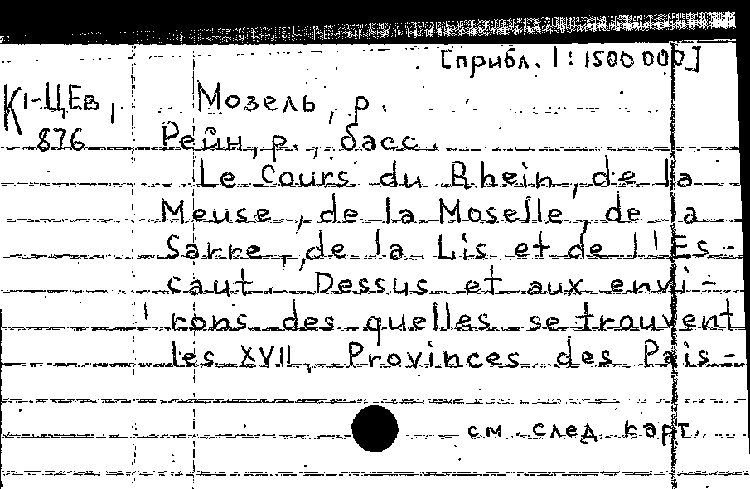 [прибл. 1:1500000]
К 1-ЦЕв 1 Мозель, р.
876 Рейн, р., басс.
Le Cours du Rhein, de la
Meuse, de la Moselle, de la
Sarre, de la Lis et de l'Es-
caut. Dessus et aux envi-
rons des quelles se trouvent
les XVII, Provinces des Pais-
см. след. карт.